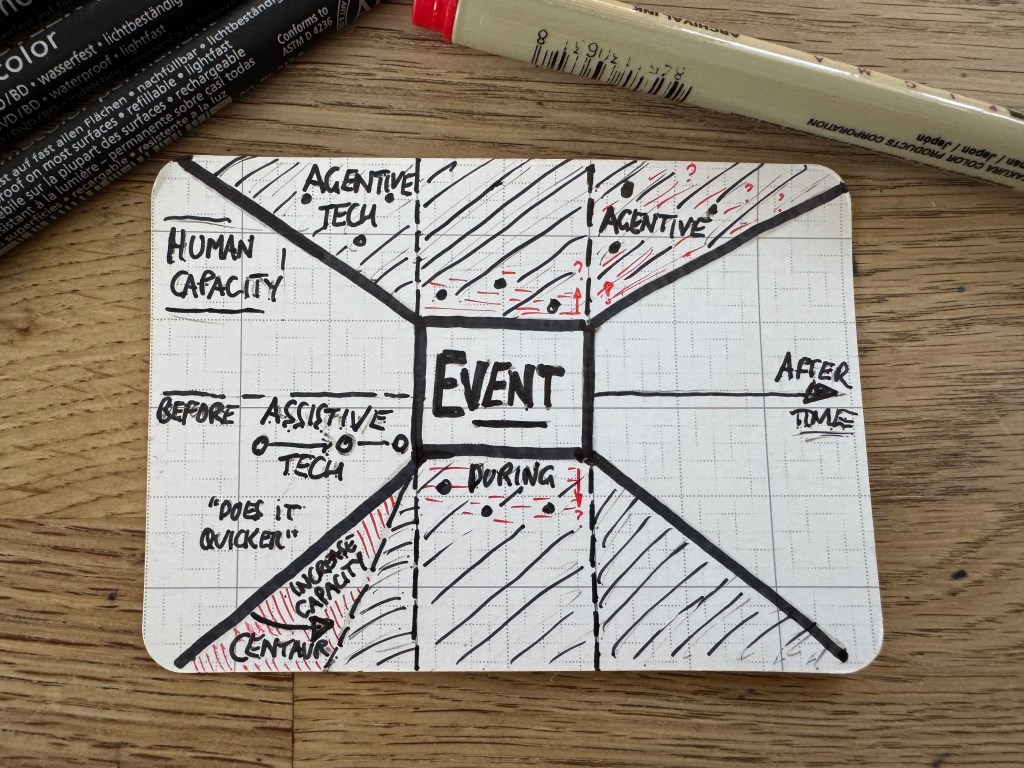 color
/BD • wasserfest • lichtbeständig
/BD • waterproof • lightfast
auf fast allen Flächen • nachfüllbar • lichtbeständig
on most surfaces • refillable • lightfast
la plupart des surfaces • rechargeable
permanente sobre casi todas
Conforms to
ASTM D 4236
ARCHIVAL INK
COLOR PRODUCTS CORPORATION
an / Japan
pan / Japón
AGENTIVE
TECH
AGENTIVE
HUMAN
CAPACITY
EVENT
AFTER
TIME
BEFORE
ASSISTIVE
TECH
DURING
"DOES IT
QUICKER"
INCREASE
CAPACITY
CENTAUR